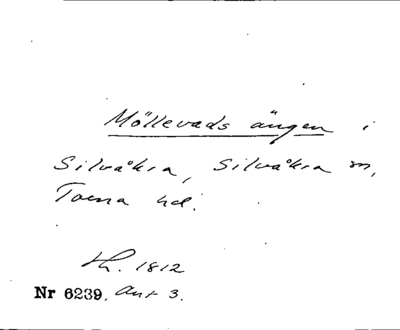 Möllevads ängen i
Silvåkra, Silvåkra sn,
Torna hd.
h. 1812
Nr 6239. Ant 3.